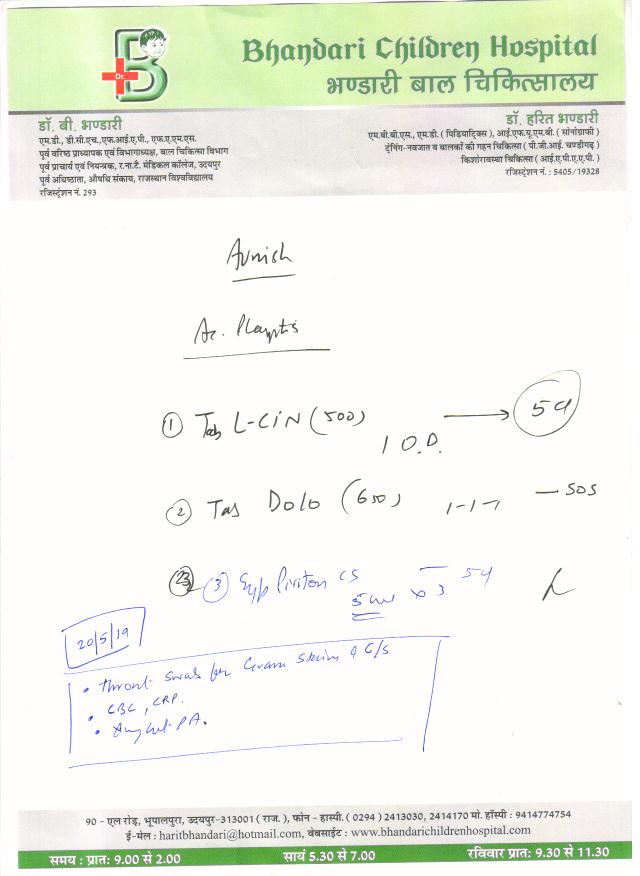 Dr. B
Bhandari Children Hospital
भण्डारी बाल चिकित्सालय
डॉ. बी. भण्डारी
एम.डी., डी.सी.एच.,एफ.आई.ए.पी., एफ.ए.एम.एस.
पूर्व वरिष्ठ प्राध्यापक एवं विभागाध्यक्ष, बाल चिकित्सा विभाग
पूर्व प्राचार्य एवं नियन्त्रक, र.ना.टै. मेडिकल कॉलेज, उदयपुर
पूर्व अधिष्ठाता, औषधि संकाय, राजस्थान विश्वविद्यालय
रजिस्ट्रेशन नं. 293
डॉ. हरित भण्डारी
एम.बी.बी.एस., एम.डी. ( पिडियाट्रिक्स ), आई.एफ.यू.एम.बी. ( सोनोग्राफी )
ट्रेनिंग-नवजात व बालकों की गहन चिकित्सा ( पी.जी.आई. चण्डीगढ़ )
किशोरावस्था चिकित्सा ( आई.ए.पी.ए.ए.पी. )
रजिस्ट्रेशन नं. : 5405/19328
Avnish
Ac.
1 Tab L-CIN (500) 1 O.D. → 5d
2 Tab Dolo (650) 1-1-1 — SOS
3 Syp CS 5ml x 3 — 5d
20/5/19
• Throat Swab for Gram Stain & C/S
• CBC, CRP.
• PA.
90 - एल रोड़, भूपालपुरा, उदयपुर-313001 ( राज. ), फोन - हास्पी. ( 0294 ) 2413030, 2414170 मो. हॉस्पी : 9414774754
ई-मेल : haritbhandari@hotmail.com, वेबसाईट : www.bhandarichildrenhospital.com
समय : प्रात: 9.00 से 2.00 सायं 5.30 से 7.00 रविवार प्रात: 9.30 से 11.30